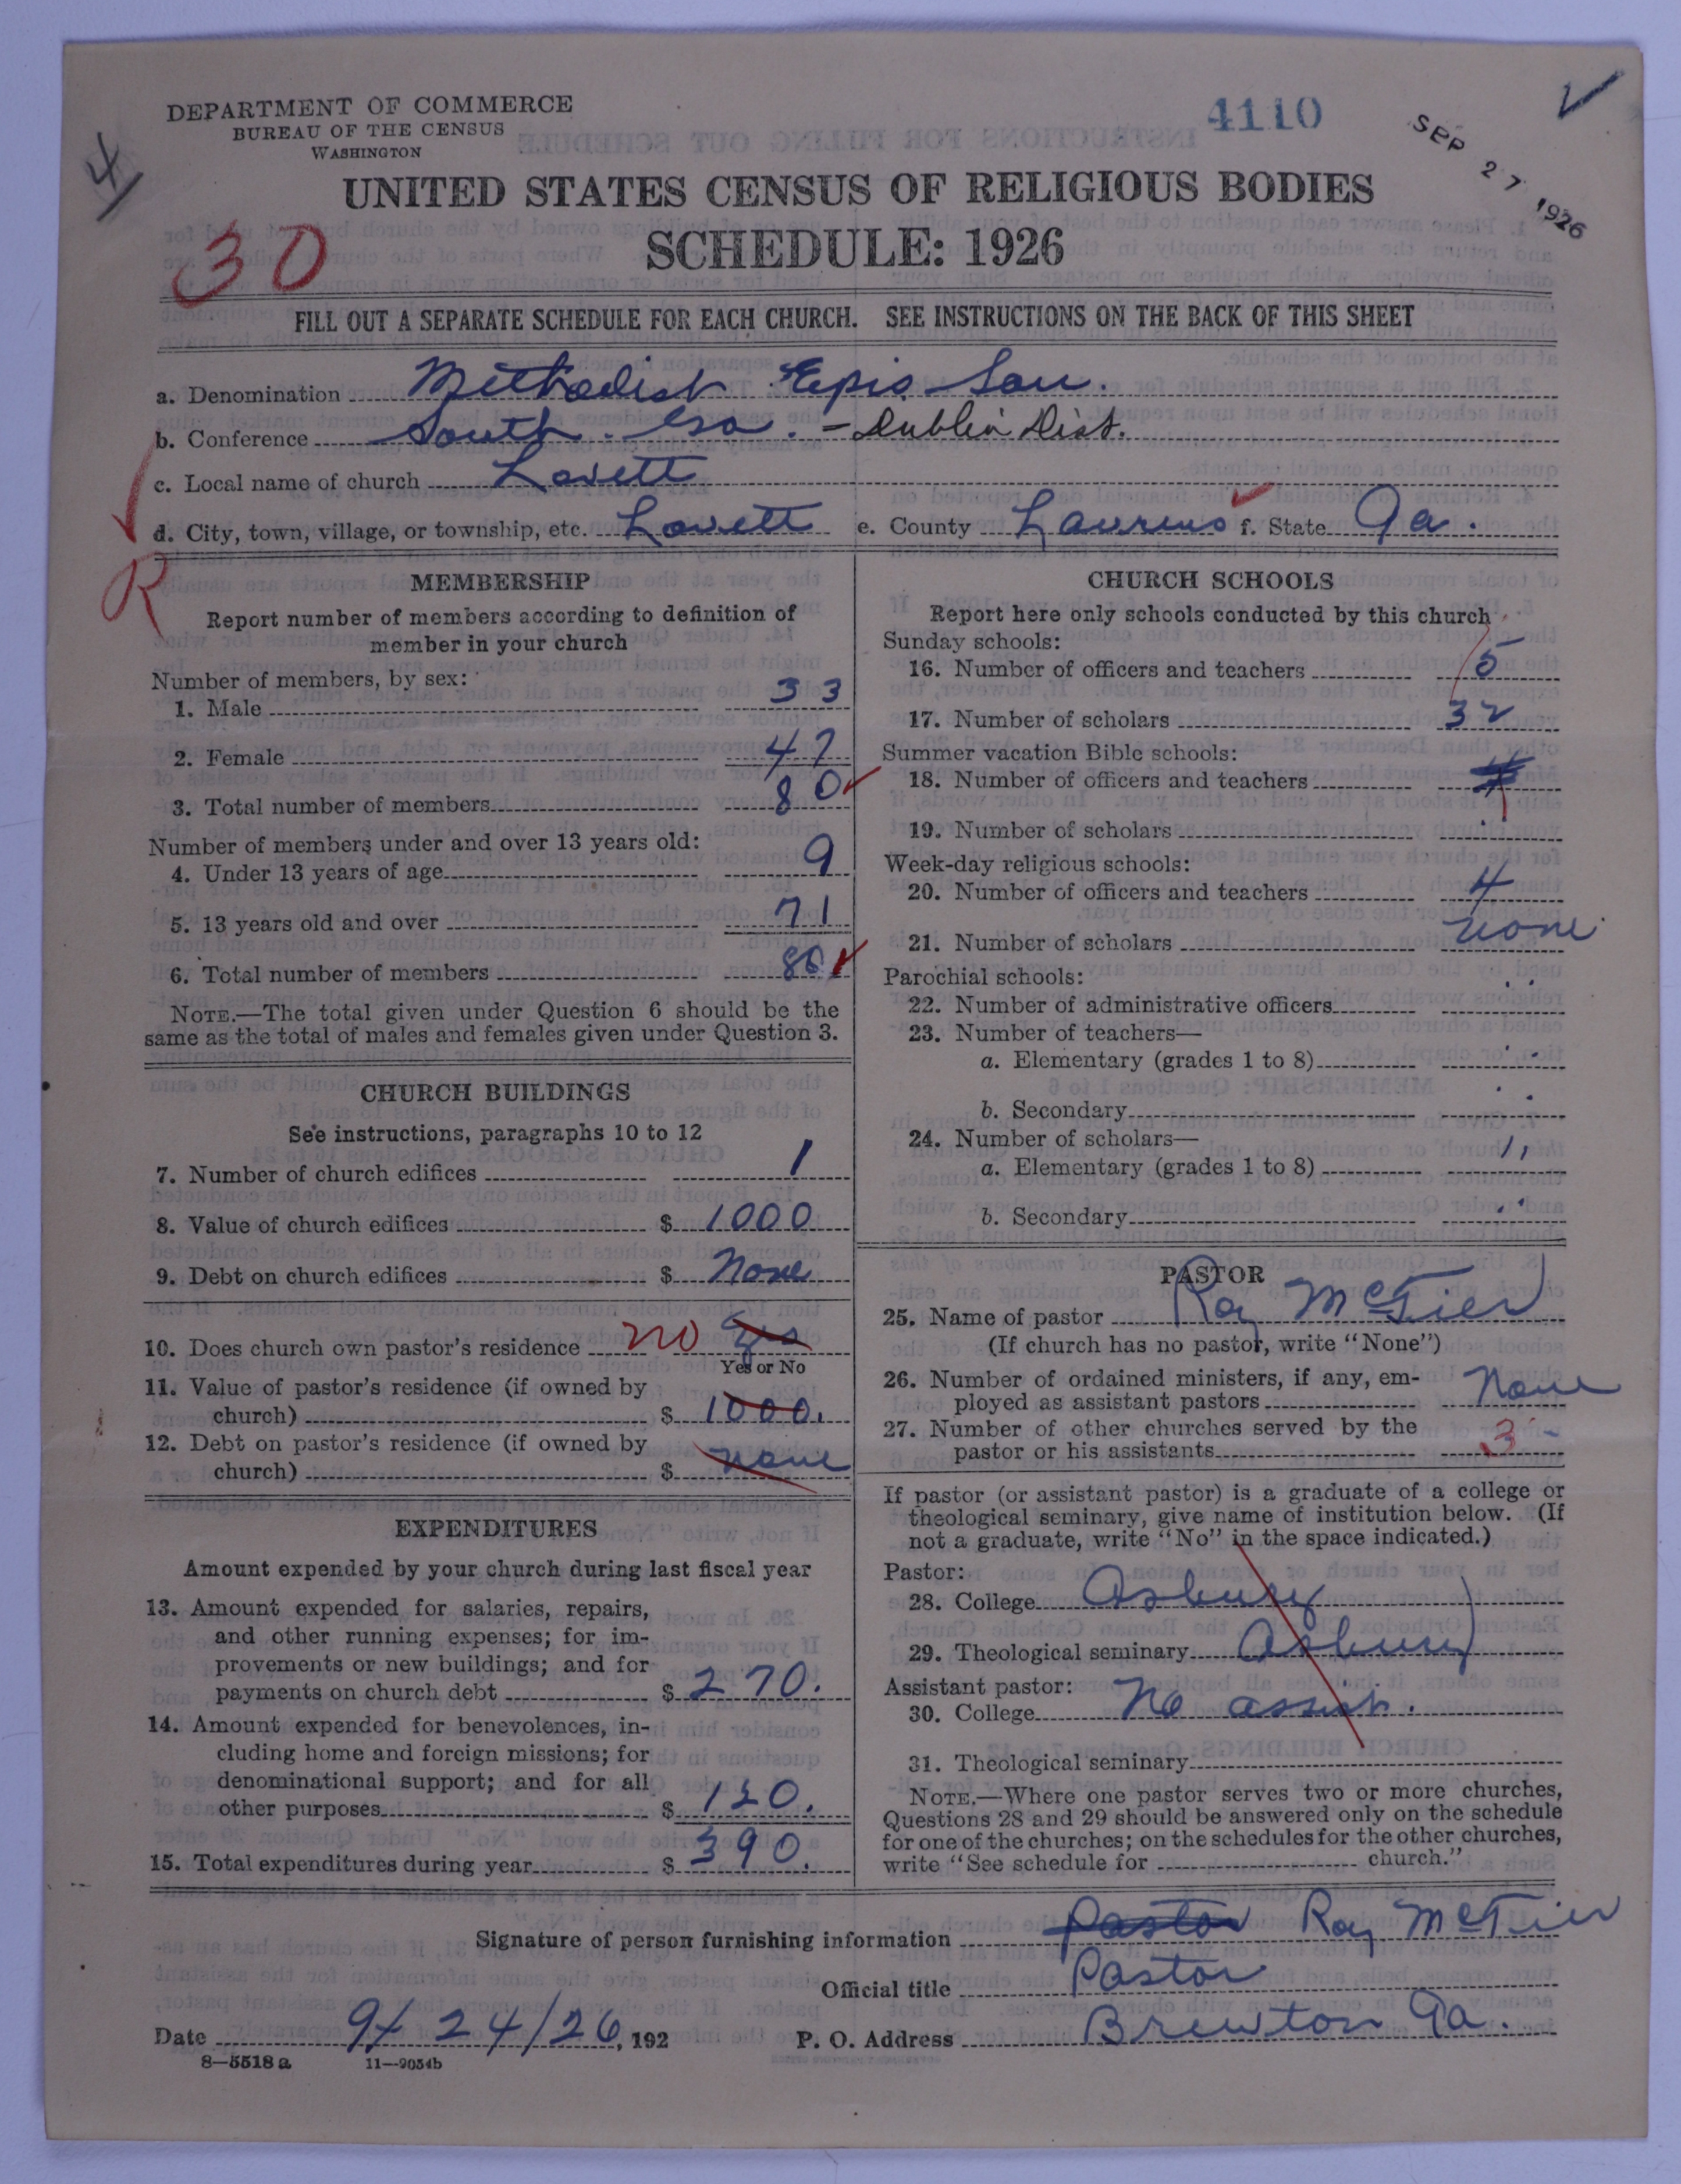 DEPARTMENT OF COMMERCE
BUREAU OF THE CENSUS
WASHINGTON
4110
SEP 27 1926
4
UNITED STATES CENSUS OF RELIGIOUS BODIES
SCHEDULE: 1926
30
FILL OUT A SEPARATE SCHEDULE FOR EACH CHURCH. SEE INSTRUCTIONS ON THE BACK OF THIS SHEET
a. Denomination Methodist Epis. Sou.
b. Conference South. Ga. - Dublin Dist.
c. Local name of church Lovett
d. City, town, village, or township, etc. Lovett e. County Laurens f. State Ga.
R
MEMBERSHIP
Report number of members according to definition of
member in your church
Number of members, by sex:
1. Male 33
2. Female 47
3. Total number of members 80
Number of members under and over 13 years old:
4. Under 13 years of age 9
5. 13 years old and over 71
6. Total number of members 80
NOTE.—The total given under Question 6 should be the
same as the total of males and females given under Question 3.
CHURCH BUILDINGS
See instructions, paragraphs 10 to 12
7. Number of church edifices 1
8. Value of church edifices $ 1000
9. Debt on church edifices $ None
10. Does church own pastor's residence no yes
Yes or No
11. Value of pastor's residence (if owned by
church) $ 1000.
12. Debt on pastor's residence (if owned by
church) $ none
EXPENDITURES
Amount expended by your church during last fiscal year
13. Amount expended for salaries, repairs,
and other running expenses; for im-
provements or new buildings; and for
payments on church debt $ 270.
14. Amount expended for benevolences, in-
cluding home and foreign missions; for
denominational support; and for all
other purposes $ 120.
15. Total expenditures during year $ 390.
CHURCH SCHOOLS
Report here only schools conducted by this church
Sunday schools:
16. Number of officers and teachers 5
17. Number of scholars 32
Summer vacation Bible schools:
18. Number of officers and teachers
19. Number of scholars
Week-day religious schools:
20. Number of officers and teachers 4
21. Number of scholars none
Parochial schools:
22. Number of administrative officers
23. Number of teachers—
a. Elementary (grades 1 to 8)
b. Secondary
24. Number of scholars—
a. Elementary (grades 1 to 8)
b. Secondary
PASTOR
25. Name of pastor Roy McTier
(If church has no pastor, write "None")
26. Number of ordained ministers, if any, em-
ployed as assistant pastors None
27. Number of other churches served by the
pastor or his assistants 3
If pastor (or assistant pastor) is a graduate of a college or
theological seminary, give name of institution below. (If
not a graduate, write "No" in the space indicated.)
Pastor:
28. College Asbury
29. Theological seminary Asbury
Assistant pastor:
30. College No assist.
31. Theological seminary
NOTE.—Where one pastor serves two or more churches,
Questions 28 and 29 should be answered only on the schedule
for one of the churches; on the schedules for the other churches,
write "See schedule for church."
Signature of person furnishing information Pastor Roy McTier
Official title Pastor
Date 9/24/26, 192 P. O. Address Brewton Ga.
8—5518 a 11—9054b